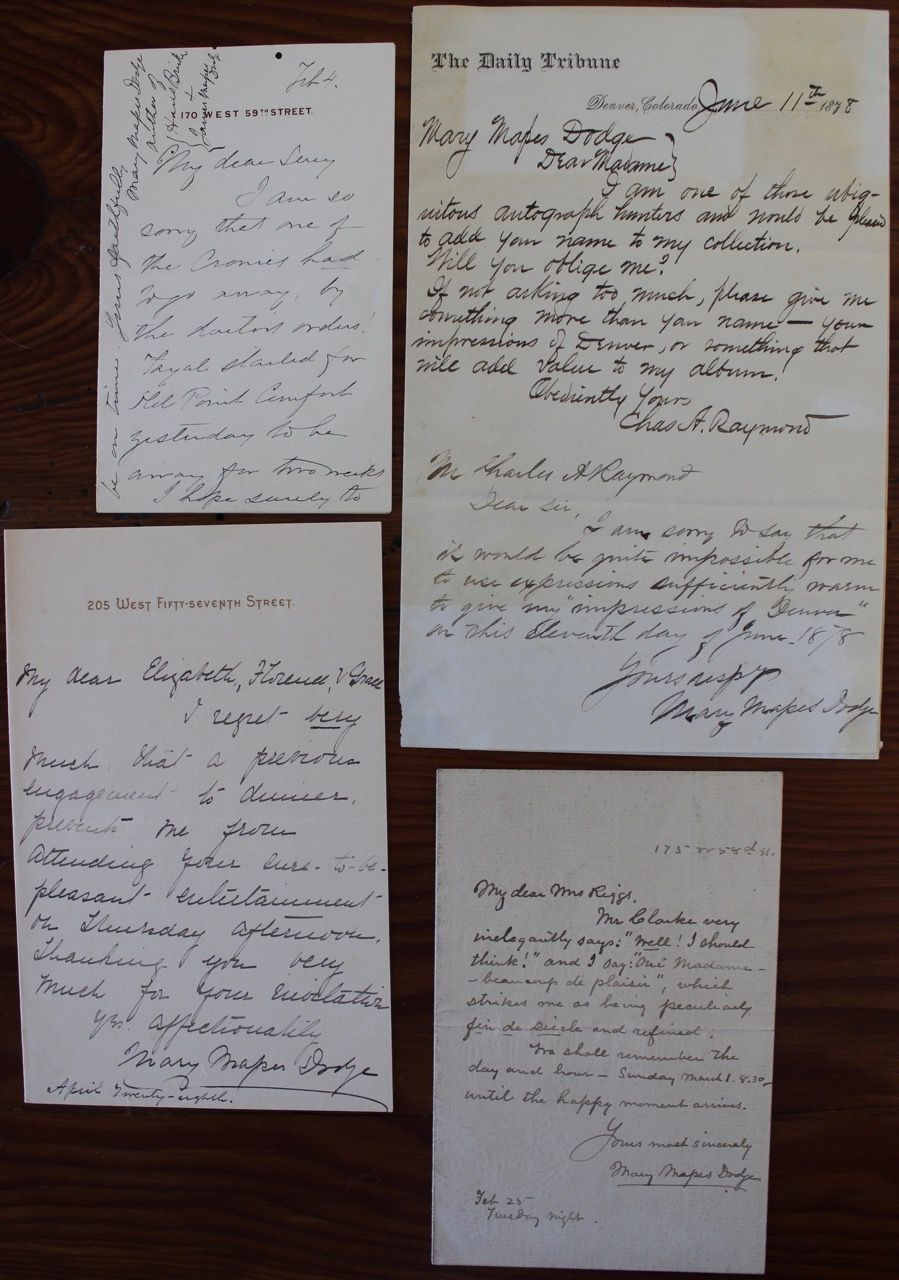 Feb 4.
170 WEST 59TH STREET.
My dear
I am so
sorry that one of
the Cronies had
to go away, by
the doctors orders!
started for
Old Point Comfort
yesterday to be
away for two weeks
I hope surely to
be on time. Yours faithfully
Mary Mapes Dodge
Mary Mapes Dodge
author of
Hans Brink
+
James Mapes Dodge
The Daily Tribune
Denver, Colorado, June 11th 1878
Mary Mapes Dodge
Dear Madame }
I am one of those ubiq-
uitous autograph hunters and would be pleased
to add your name to my collection.
Will you oblige me?
If not asking too much, please give me
something more than your name — your
impressions of Denver, or something that
will add value to my album!
Obediently Yours
Chas A. Raymond
Mr Charles A Raymond
Dear Sir,
I am sorry to say that
it would be quite impossible for me
to use expressions sufficiently warm
to give my "impressions of Denver"
on this Eleventh day of June 1878
Yours respy
Mary Mapes Dodge
205 WEST FIFTY-SEVENTH STREET.
My dear Elizabeth, Florence, & Grace
I regret very
much that a previous
engagement to dinner,
prevents me from
attending your sure-to-be-
pleasant entertainment
on Thursday afternoon.
Thanking you very
much for your invitation
Yrs affectionately
Mary Mapes Dodge
April Twenty-eighth.
175 W 58th St.
My dear Mrs Riggs,
Mr Clarke very
inelegantly says: "Well! I should
think!" and I say: "Oui Madame -
- beaucoup de plaisir", which
strikes me as being peculiarly
fin de siecle and refined.
We shall remember the
day and hour — Sunday March 1. 8.30,
until the happy moment arrives.
Yours most sincerely
Mary Mapes Dodge
Feb 25
Tuesday night.